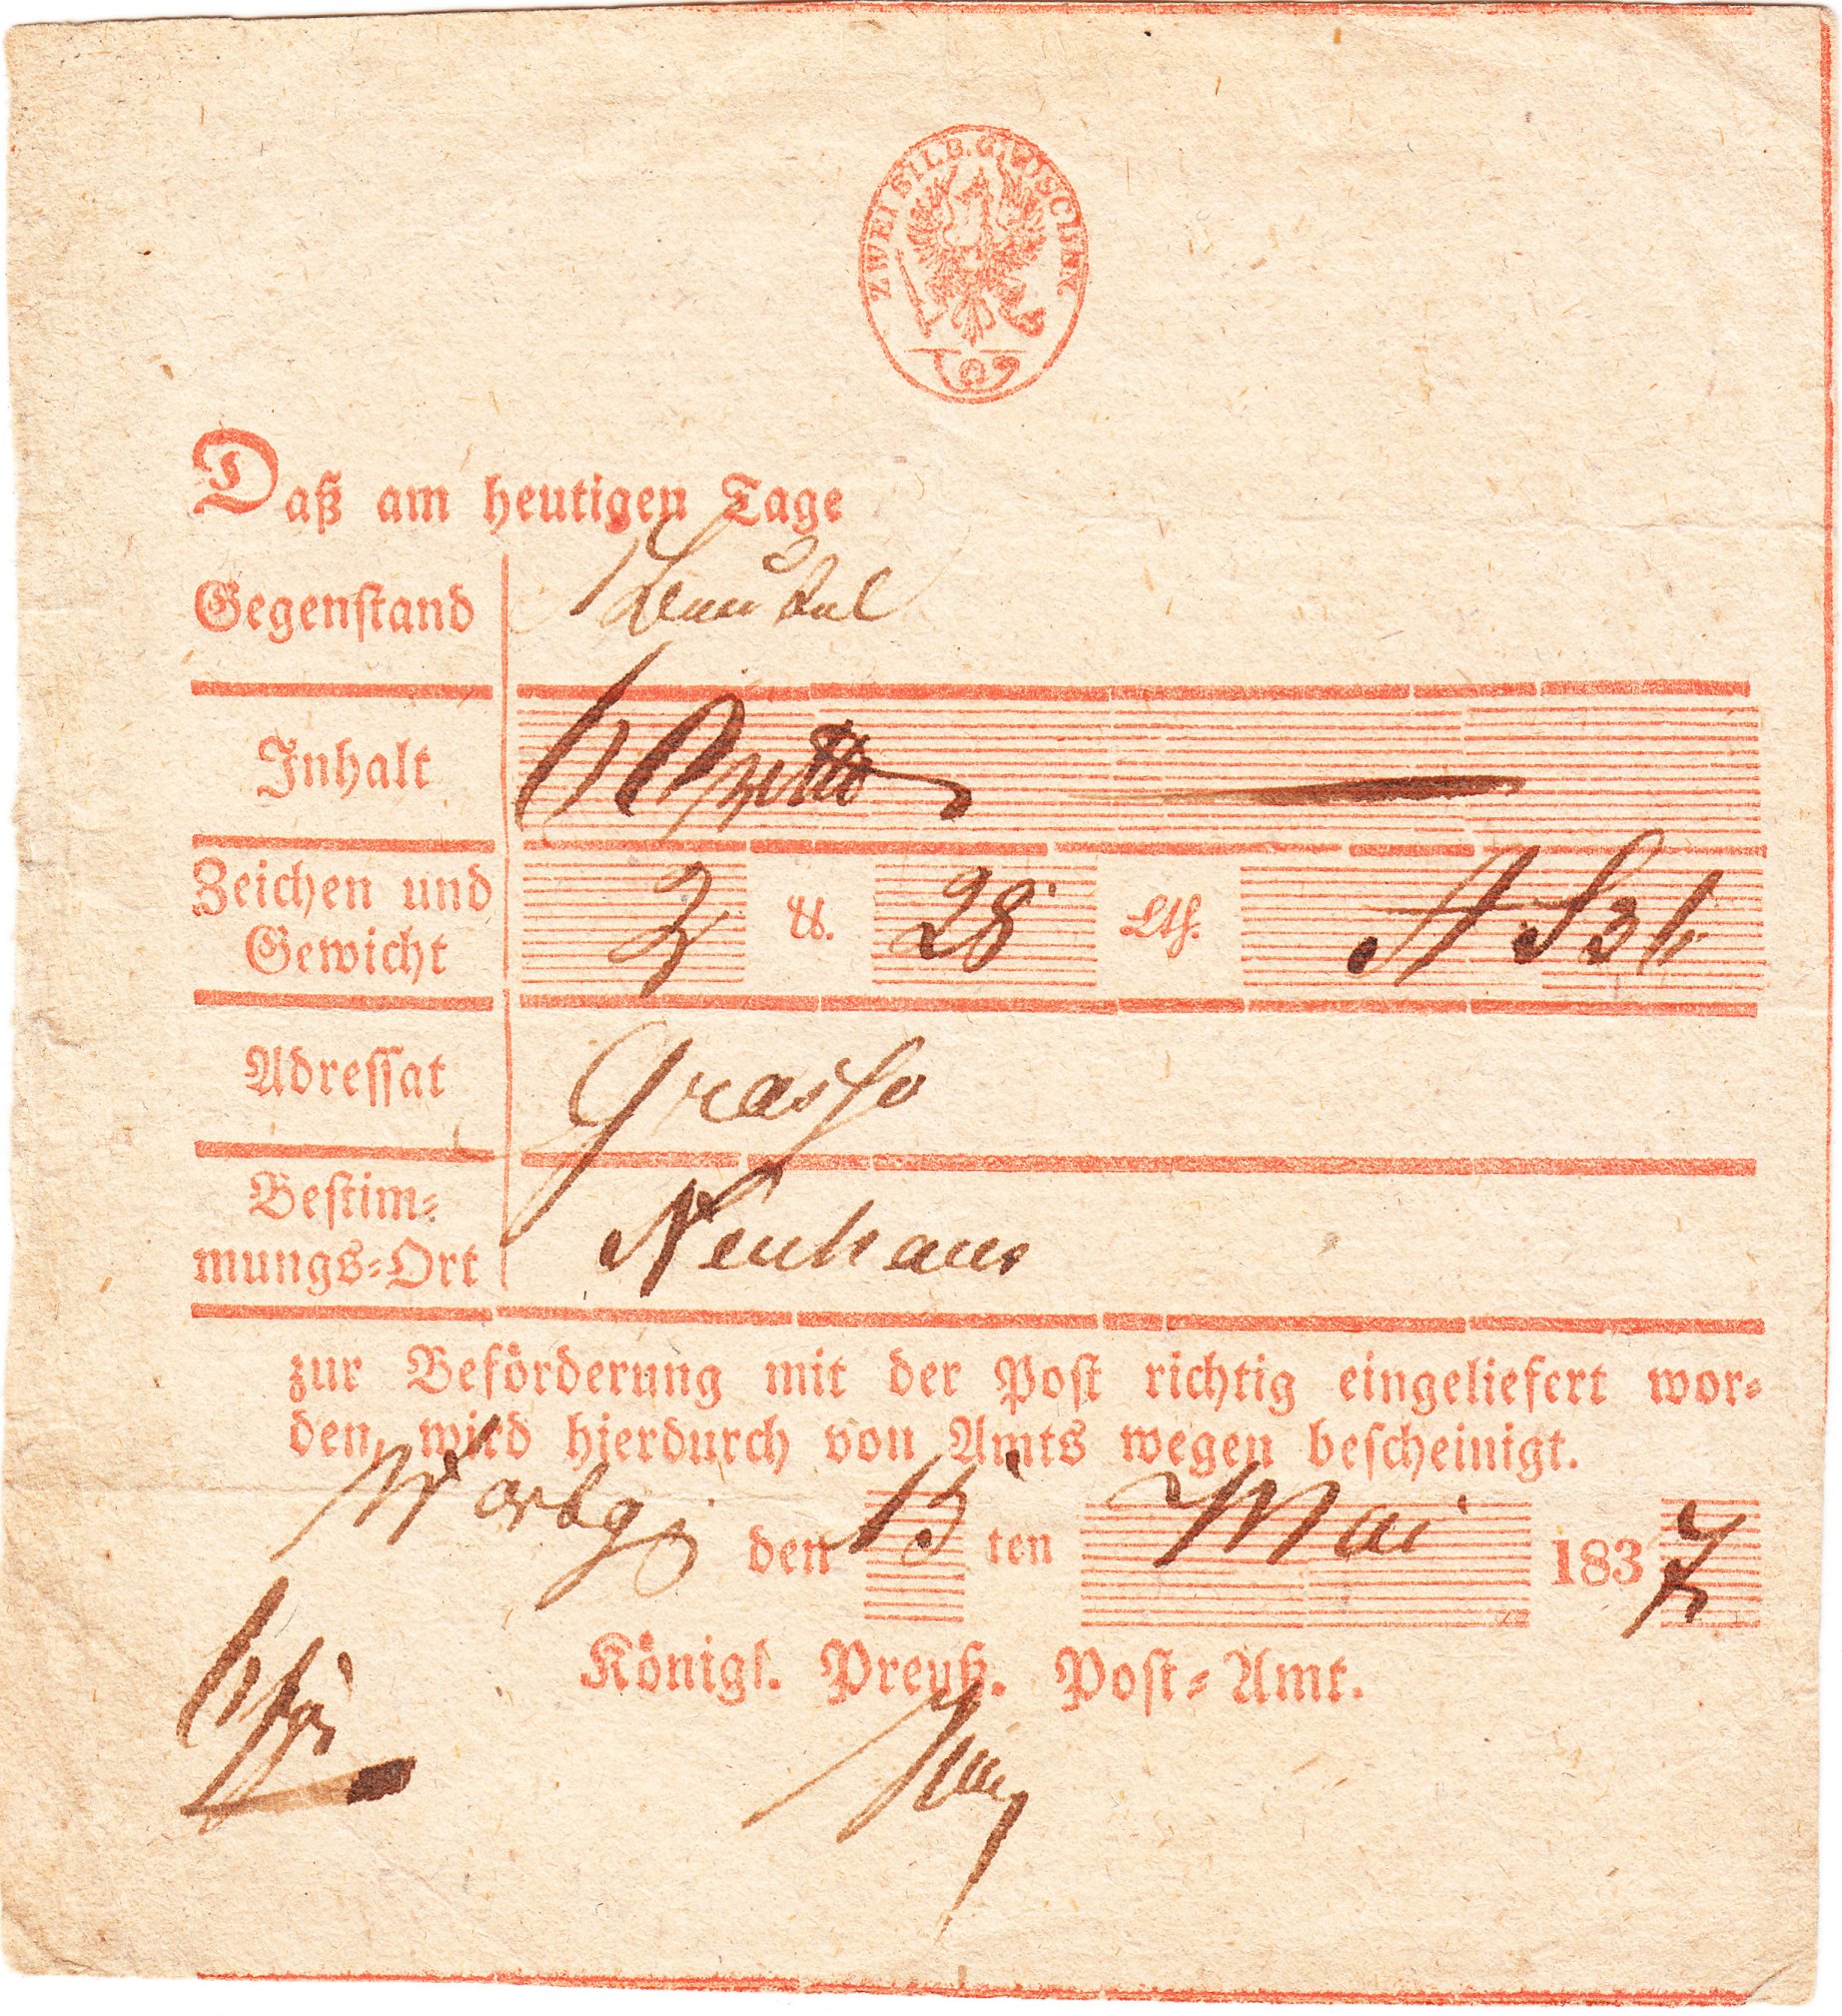 ZWEI SILB. GROSCHEN.
Daß am heutigen Tage
Gegenstand
Inhalt
Zeichen und 2 ℔. 28 Lth.
Gewicht
Adressat Grasso
Bestim-
mungs-Ort Neuhaus
zur Beförderung mit der Post richtig eingeliefert wor-
den, wird hierdurch von Amts wegen bescheinigt.
Warbg den 15 ten Mai 1837
Königl. Preuß. Post-Amt.